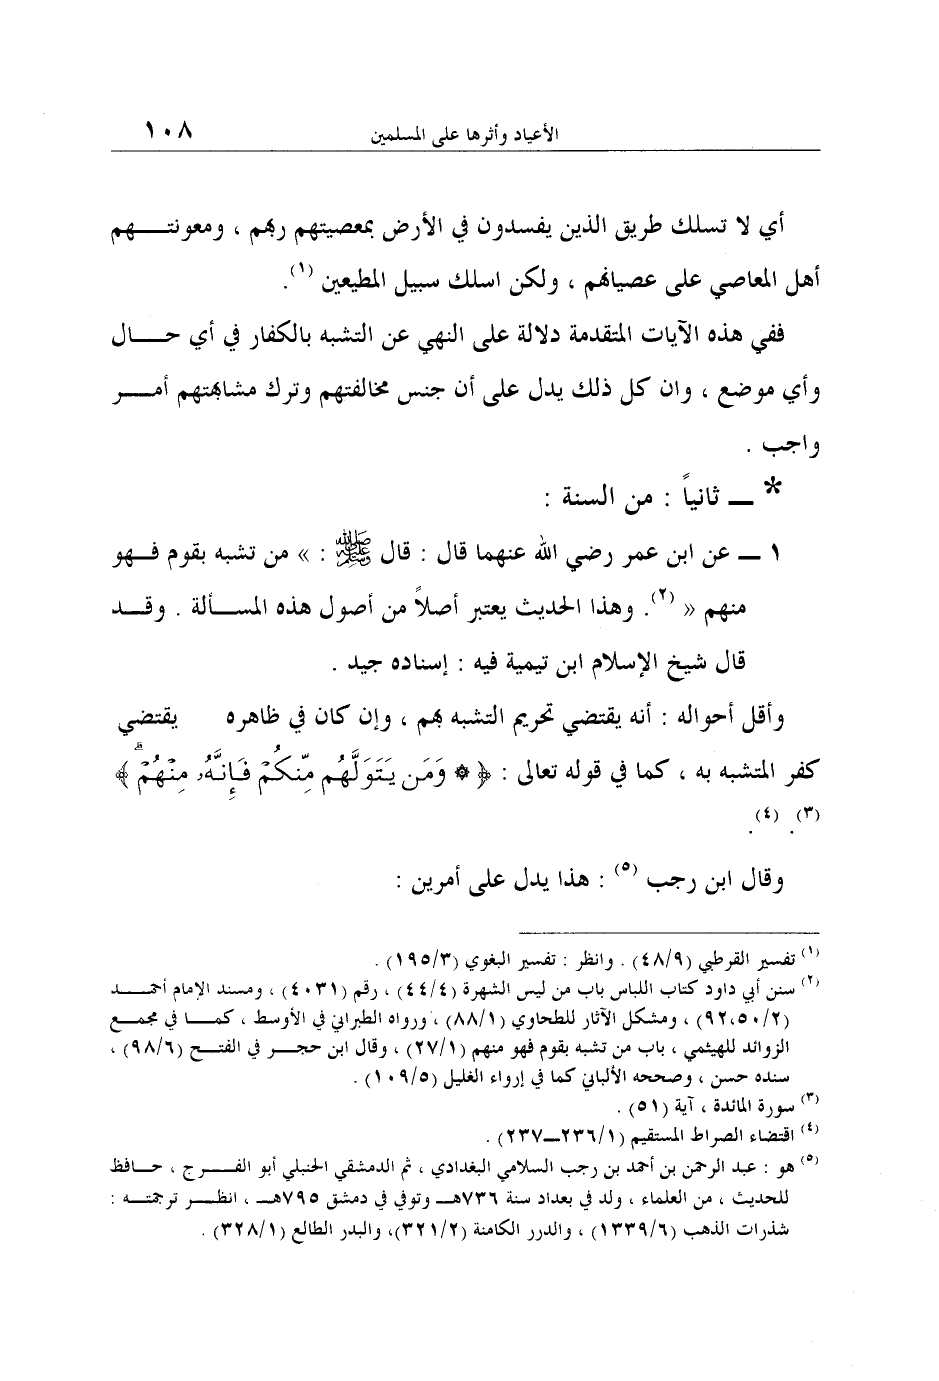 الأعياد وأثرها على المسلمين ١٠٨
أي لا تسلك طريق الذين يفسدون في الأرض بمعصيتهم ربهم ، ومعونتهم
أهل المعاصي على عصيانهم ، ولكن اسلك سبيل المطيعين (١).
ففي هذه الآيات المتقدمة دلالة على النهي عن التشبه بالكفار في أي حال
وأي موضع ، وان كل ذلك يدل على أن جنس مخالفتهم وترك مشابهتهم أمر
واجب .
* ــ ثانياً : من السنة :
١ ــ عن ابن عمر رضي الله عنهما قال : قال ﷺ : » من تشبه بقوم فهو
منهم « (٢). وهذا الحديث يعتبر أصلاً من أصول هذه المسألة . وقد
قال شيخ الإسلام ابن تيمية فيه : إسناده جيد .
وأقل أحواله : أنه يقتضي تحريم التشبه بهم ، وإن كان في ظاهره يقتضي
كفر المتشبه به ، كما في قوله تعالى : ﴿ ۞ وَمَن يَتَوَلَّهُم مِّنكُمْ فَإِنَّهُۥ مِنْهُمْ ۗ ﴾
(٣). (٤).
وقال ابن رجب (٥) : هذا يدل على أمرين :
(١) تفسير القرطبي (٤٨/٩) . وانظر : تفسير البغوي (١٩٥/٣) .
(٢) سنن أبي داود كتاب اللباس باب من لبس الشهرة (٤٤/٤) ، رقم (٤٠٣١) ، ومسند الإمام أحمد
(٩٢،٥٠/٢) ، ومشكل الآثار للطحاوي (٨٨/١) ، ورواه الطبراني في الأوسط ، كما في مجمع
الزوائد للهيثمي ، باب من تشبه بقوم فهو منهم (٢٧/١) ، وقال ابن حجر في الفتح (٩٨/٦) ،
سنده حسن ، وصححه الألباني كما في إرواء الغليل (١٠٩/٥) .
(٣) سورة المائدة ، آية (٥١) .
(٤) اقتضاء الصراط المستقيم (٢٣٦/١ــ٢٣٧) .
(٥) هو : عبد الرحمن بن أحمد بن رجب السلامي البغدادي ، ثم الدمشقي الحنبلي أبو الفرج ، حافظ
للحديث ، من العلماء ، ولد في بغداد سنة ٧٣٦هـ وتوفي في دمشق ٧٩٥هـ ، انظر ترجمته :
شذرات الذهب (١٣٣٩/٦) ، والدرر الكامنة (٣٢١/٢)، والبدر الطالع (٣٢٨/١) .